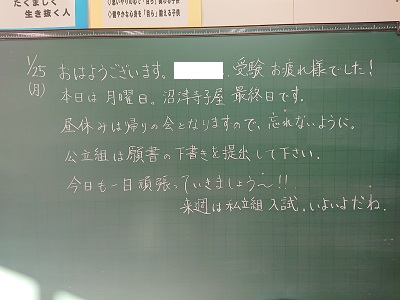 たくましく
生き抜く人
1/25
(月)
おはようございます。 、受験 お疲れ様でした!
本日は 月曜日。沼津寺子屋 最終日です。
昼休みは帰りの会となりますので、忘れないように。
公立組は願書の下書きを提出して下さい。
今日も一日頑張っていきましょう〜!!
来週は私立組 入試。いよいよだね。